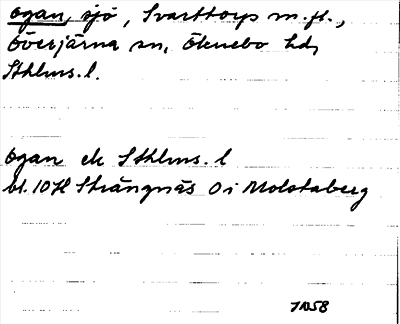 Ogan, sjö, Svarttorps m.fl.,
Överjärna sn, Öknebo hd,
Sthlms. l.
Ogan ek Sthlms. l
bl. 10H Strängnäs O i Molstaberg
1958